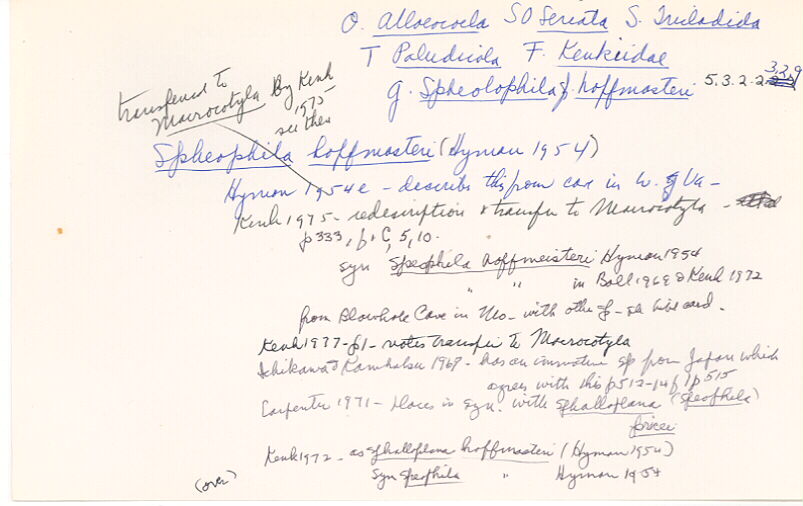 O. Alloeocoela SO Seriata S. Tricladida
T Paludicola F. Kenkiidae
g. Speolophila f. hoffmasteri 5.3.2.2 3.2.9
transferred to Macrocotyla By Kenk 1975 see then
Speophila hoffmasteri (Hyman 1954)
Hyman 1954e - describes this from cave in W. Va -
Kenk 1975 - redescription & transfer to Macrocotyla -
p333, f + C, 5, 10.
syn Speophila hoffmeisteri Hyman 1954
" " in Ball 1969 & Kenk 1972
from Blowhole Cave in Mo - with other sp - see card.
Kenk 1977 - p1 - notes transfer to Macrocotyla
Ichikawa & Kawakatsu 1967 - has an immature sp from Japan which
agrees with this p512-14 f1 p515
Carpenter 1971 - places in syn. with Sphalloplana (Speophila)
pricei
Kenk 1972 - as Sphalloplana hoffmasteri (Hyman 1954)
syn Speophila " Hyman 1954
(over)